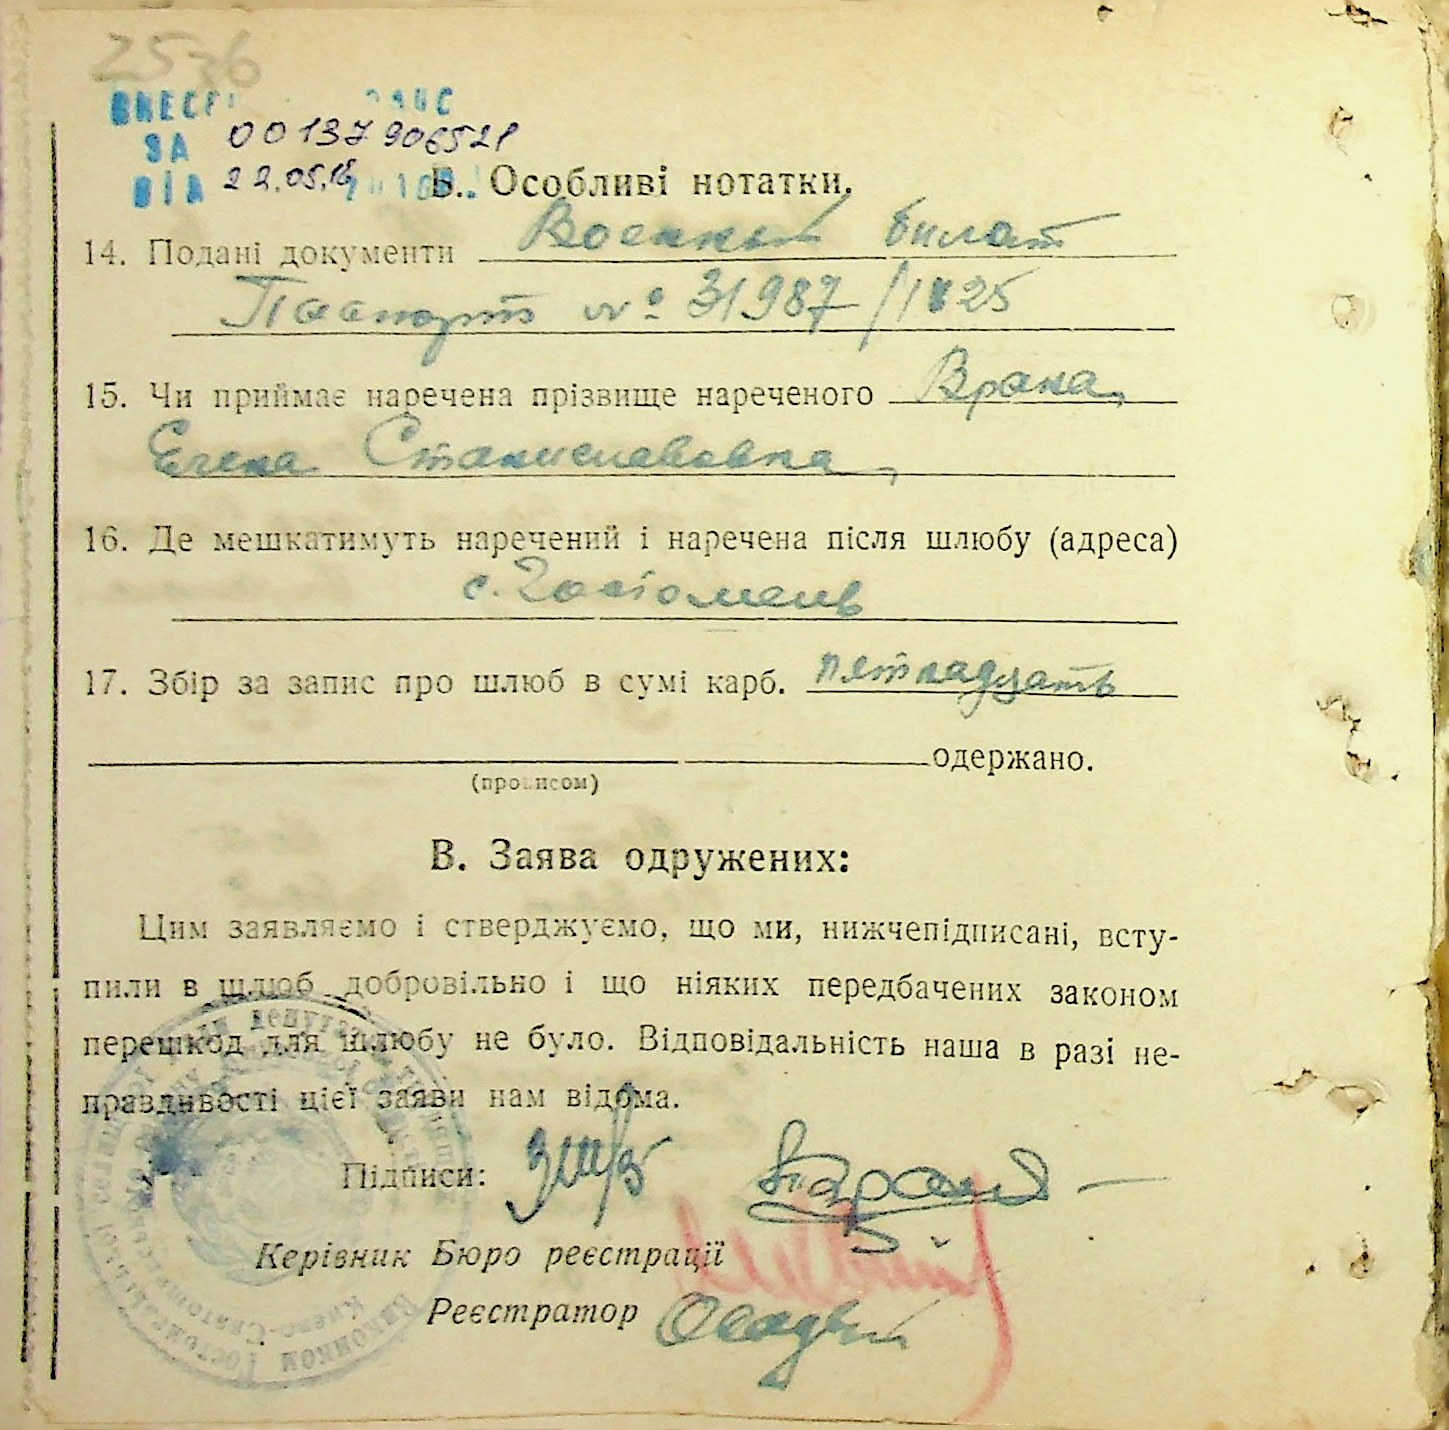 2536
ЗА 00137906521
ВІД 22.05.18
Б. Особливі нотатки.
14. Подані документи Военный билет
Паспорт № 31987/1825
15. Чи приймає наречена прізвище нареченого
Елена Станиславовна,
16. Де мешкатимуть наречений і наречена після шлюбу (адреса)
с. Гостомель
17. Збір за запис про шлюб в сумі карб. пятнадцать
одержано.
(прописом)
В. Заява одружених:
Цим заявляємо і стверджуємо, що ми, нижчепідписані, всту-
пили в шлюб добровільно і що ніяких передбачених законом
перешкод для шлюбу не було. Відповідальність наша в разі не-
правдивості цієї заяви нам відома.
Підписи:
Керівник Бюро реєстрації
Реєстратор